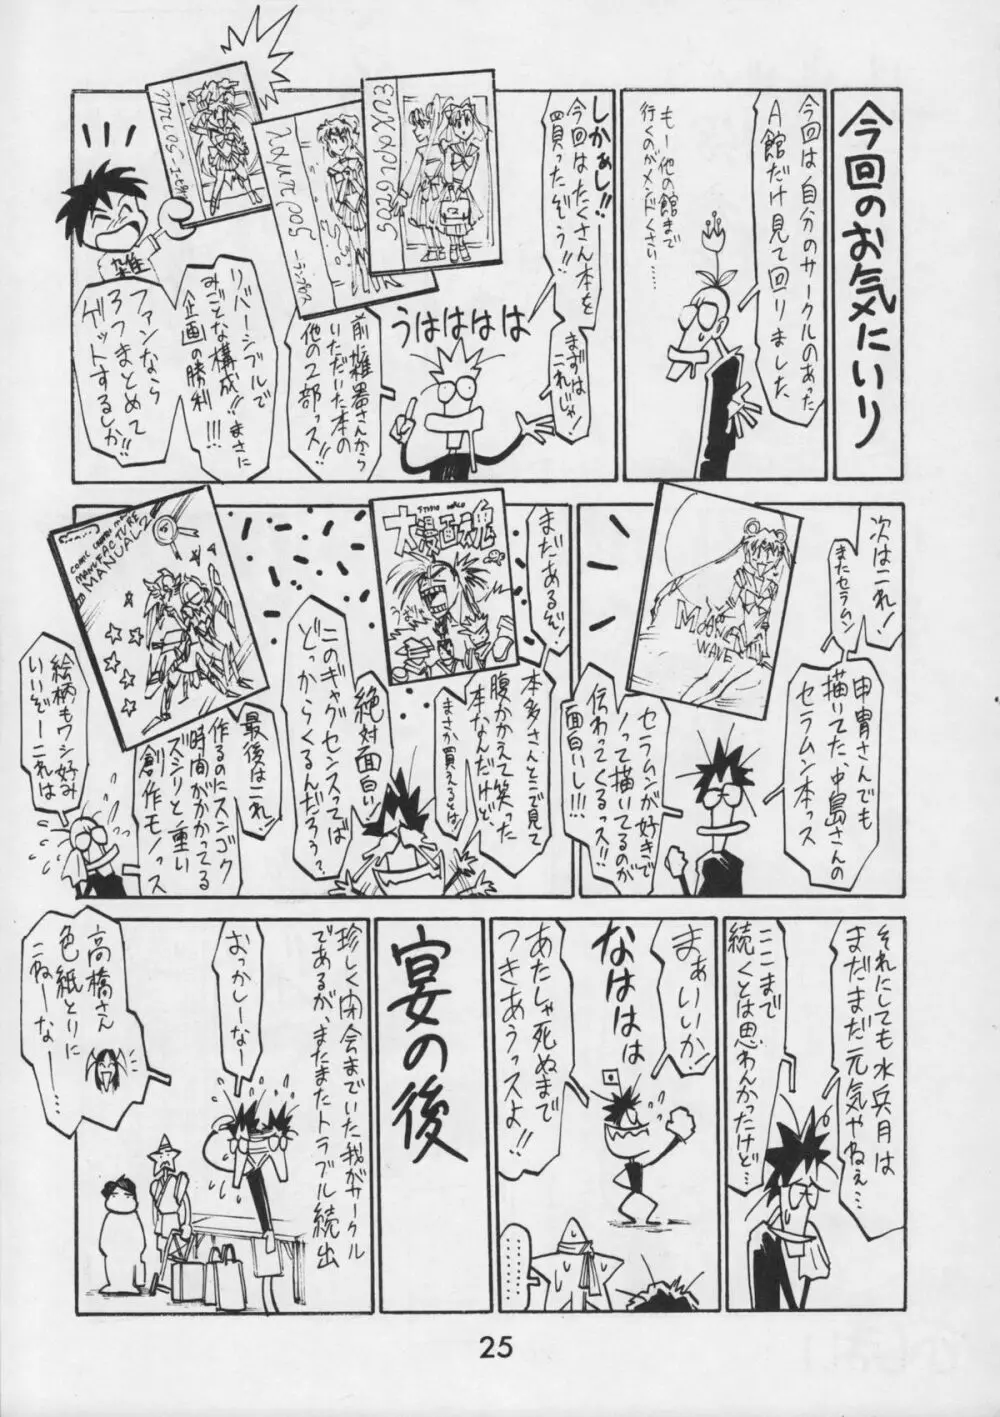 今回のお気にいり
今回は自分のサークルのあった
A館だけ見て回りました
もー他の館まで
行くのがメンドくさい……
しかぁし!!
今回はたくさん本を
買ったぞう!!
まずは
これじゃ!
うはははは
前、雑器さんから
いただいた本の
他の2部ッス!!
リバーシブルで
みごとな構成!!まさに
企画の勝利!!!
ファンなら
3つまとめて
ゲットするしか!!
雑
次はこれ!
またセラムン
申胄さんでも
描いてた、中島さんの
セラムン本っス
MOON
WAVE
セラムンが好きで
ノって描いてるのが
伝わってくるっス!!
面白いし!!!
まだあるぞ!
STUDIO
大漫画魂
本多さんとこで見て
腹かかえて笑った
本なんだけど、
まさか買えるとは
絶対面白い
このギャグセンスってば
どっからくるんだろう?
最後はこれ!
作るのにスンゴク
時間がかかってる
ズシリと重い
創作モノっス
COMIC
MANUFACTURE
MANUAL2
絵柄もワシ好み
いいぞーこれは
それにしても水兵月は
まだまだ元気やねぇ…
ここまで
続くとは思わんかったけど…
まぁいいか、
なははは
あたしゃ死ぬまで
つきあうっスよ!!
………
宴の後
珍しく閉会までいた我がサークル
であるが、またまたトラブル続出
おっかしーなー
高橋さん
色紙とりに
こねーなー……
25